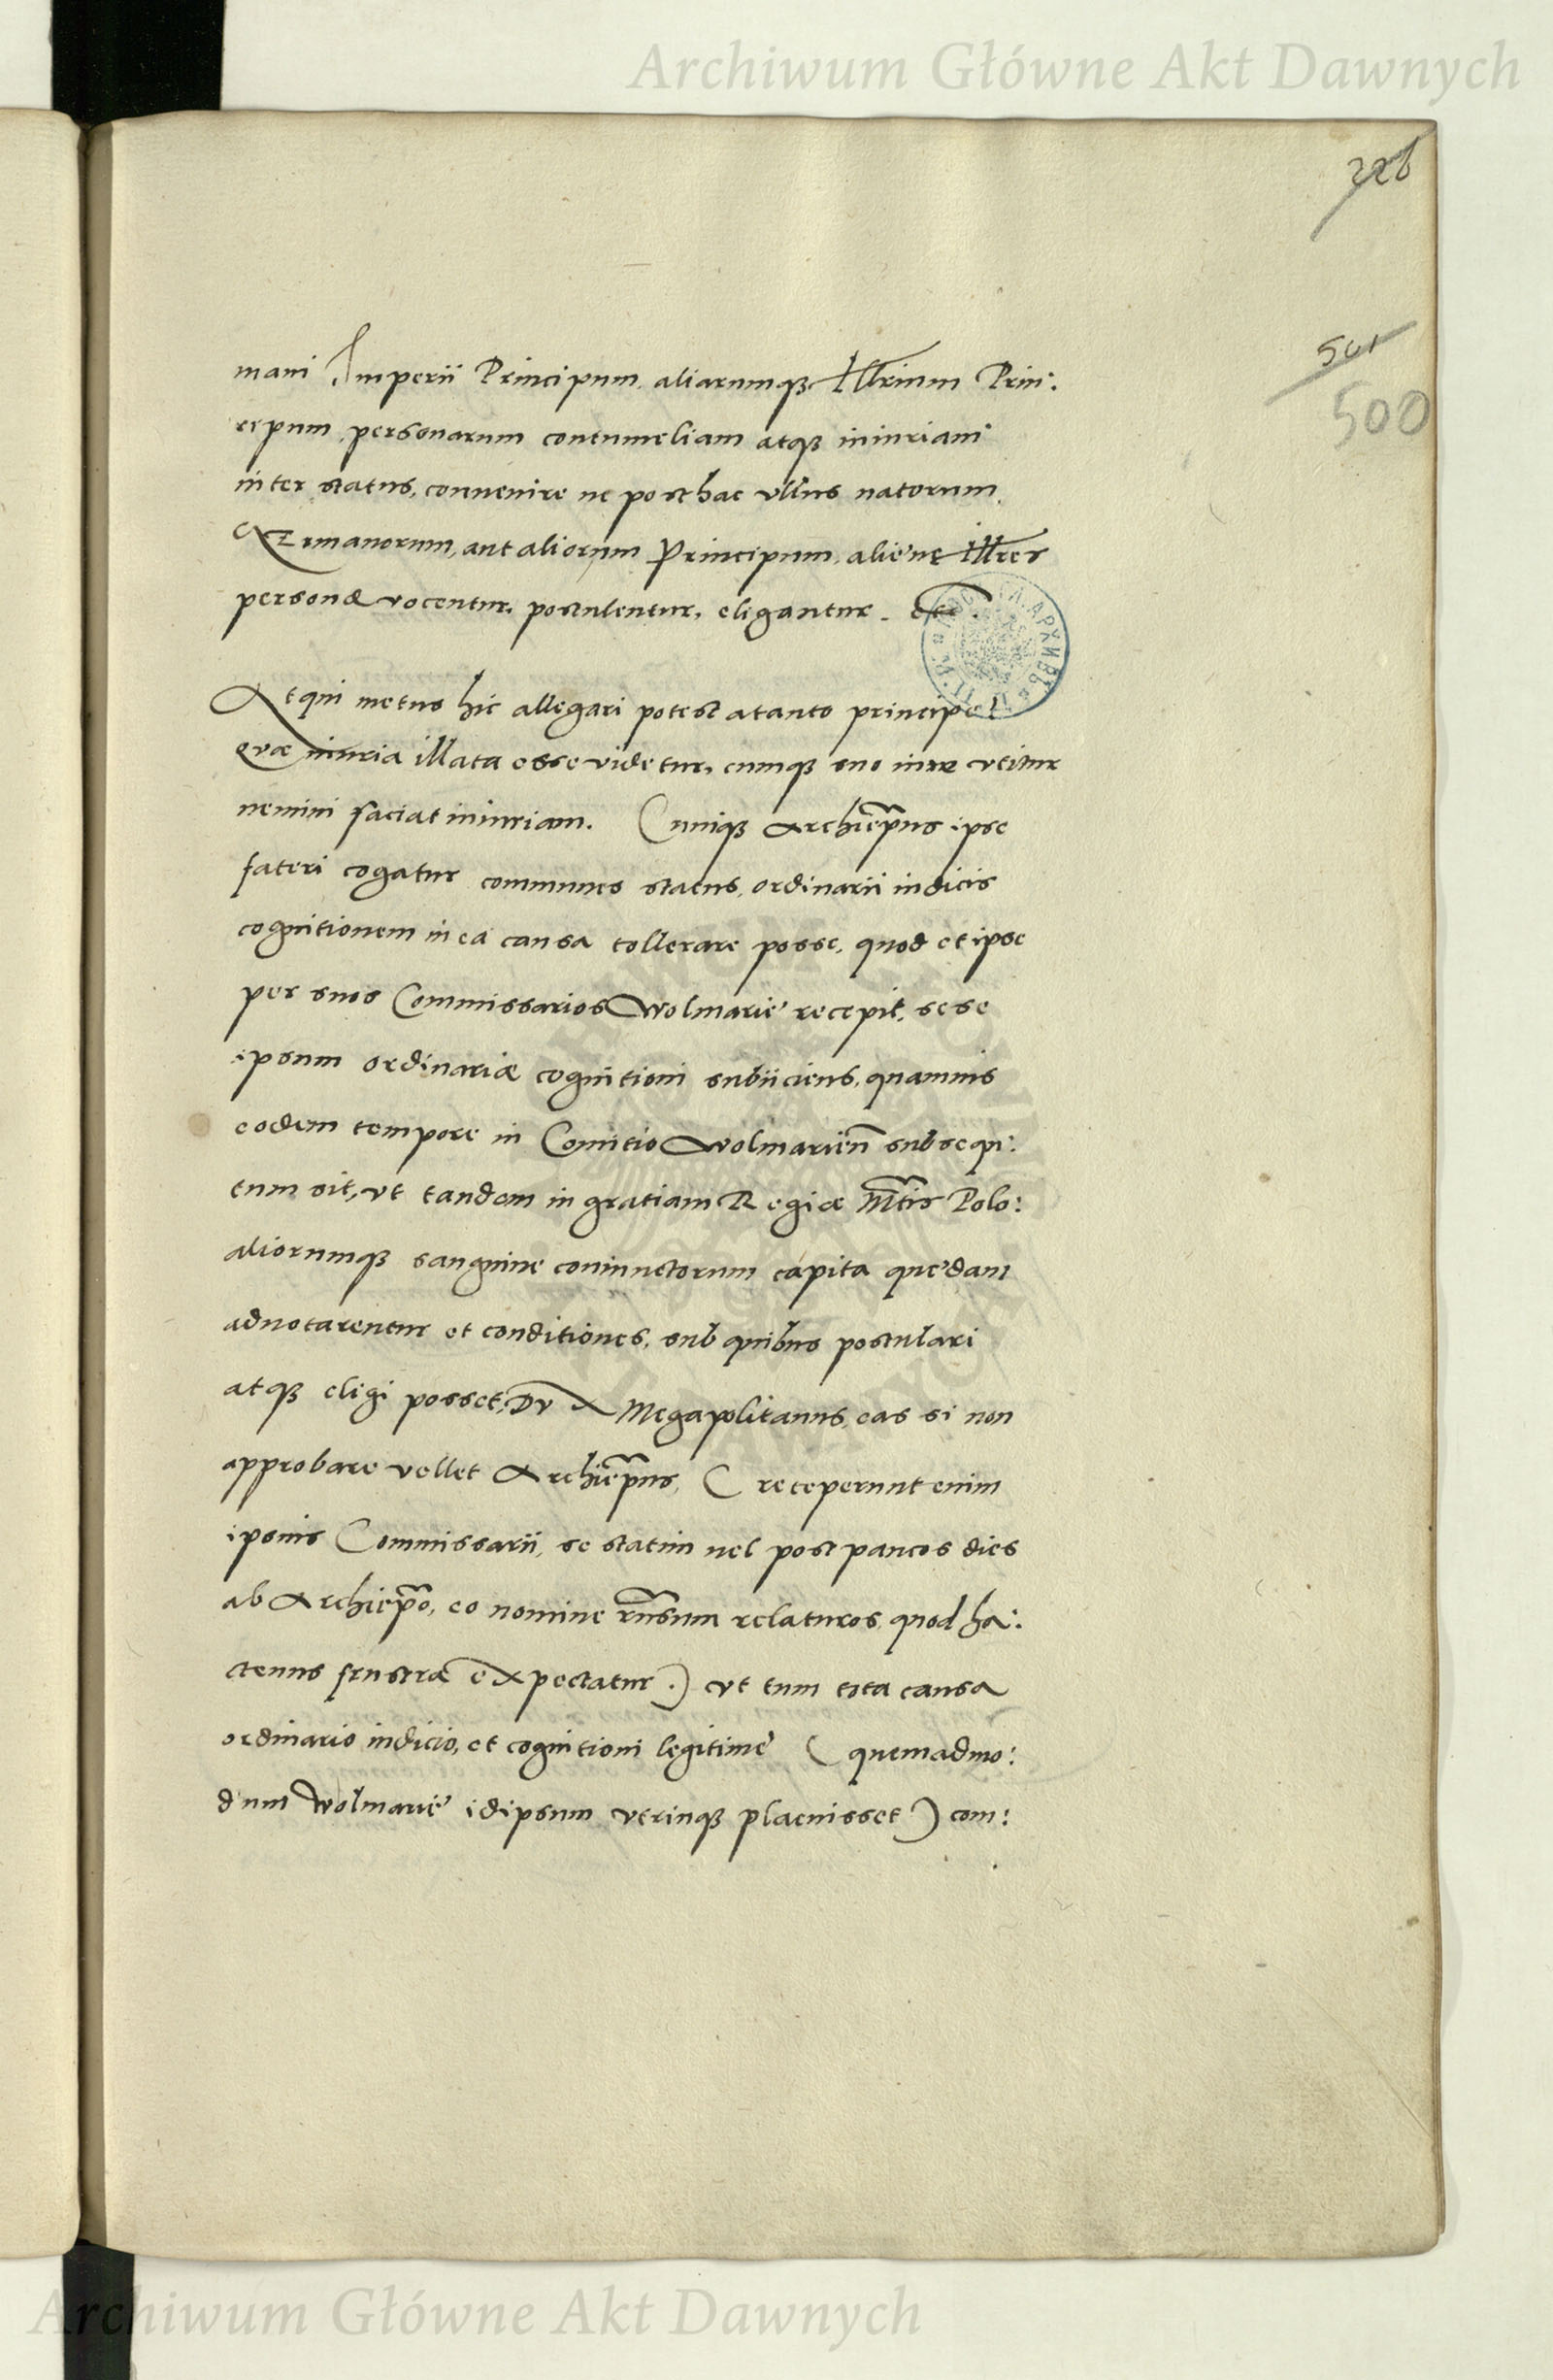 Archiwum Główne Akt Dawnych
226
501
500
mani Imperii Principum, aliarumq3 Illrium Prin:
cipum, personarum contumeliam atq3 iniuriam
inter status, conuenire ne posthac vllus natorum
Germanorum, aut aliorum Principum, aliëue Illres
personæ vocentur, postulentur, eligantur. etc.
Atqui metus hic allegari potest a tanto principe
Quæ iniuria illata esse videtur, cumq3 suo iure vtitur
nemini faciat iniuriam. Cumq3 Archiepus ipse
fateri cogatur communes status, ordinarii iudicis
cognitionem in ea causa tollerare posse, quod et ipse
per suos Commissarios Wolmarie recepit, sese
ipsum ordinariæ cognitioni subiiciens, quamuis
eodem tempore in Comitio Wolmarien subsequ:
tum sit, vt tandem in gratiam Regiæ Mtis Polo:
aliorumq3 sanguine coniunctorum capita quedam
adnotarentur et conditiones, sub quibus postulari
atq3 eligi posset, Dux Megapolitanus, eas si non
approbare vellet Archiepus, ( receperunt enim
ipsius Commissarii, se statim uel post paucos dies
ab Archiepo, eo nomine rursum relaturos, quod ha:
ctenus frustra expectatur.) vt tum tota causa
ordinario iudicio, et cognitioni legitime ( quemadmo:
dum Wolmarie idipsum vtrinq3 placuisset) com:
Archiwum Główne Akt Dawnych